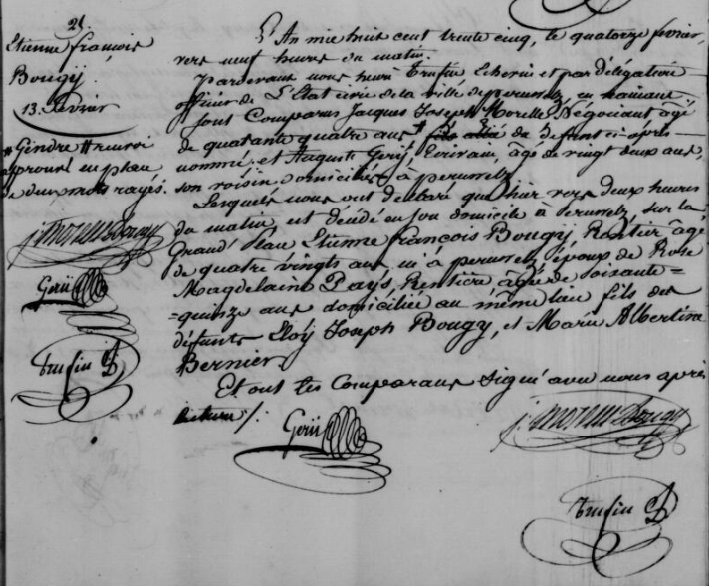 21.
Etienne françois
Bougÿ.
13. fevrier
# Gendre # renvoi
approuvé en place
de deux mots rayés.
j. morelle Bougy
Gerÿ
Trufin
L'An mil huit cent trente cinq, le quatorze fevrier,
vers neuf heures du matin.
Pardevant nous henri Trufin Echevin et par délégation
officier de L'Etat civil de la ville de peruwelz en hainaut
Sont Comparus Jacques Joseph Morelle Négociant âgé
de quarante quatre ans # du Défunt ci-après
nommé, et Auguste Gerÿ, Ecrivain, âgé de vingt deux ans,
son voisin Domiciliés à peruwelz
Lesquels nous ont déclaré que hier vers deux heures
du matin, est décédé en son domicile à Peruwelz, sur la
Grand' Place Etienne François Bougÿ, Rentier âgé
de quatre vingts ans né à peruwelz époux de Rose
Magdelaine Pays, Rentière âgée de soixante =
= quinze ans domiciliée au même lieu fils des
défunts Eloÿ Joseph Bougy, et Marie Albertine
Bernier.
Et ont les Comparans Signé avec nous après
lecture ./.
Gerÿ
j. morelle Bougy
Trufin